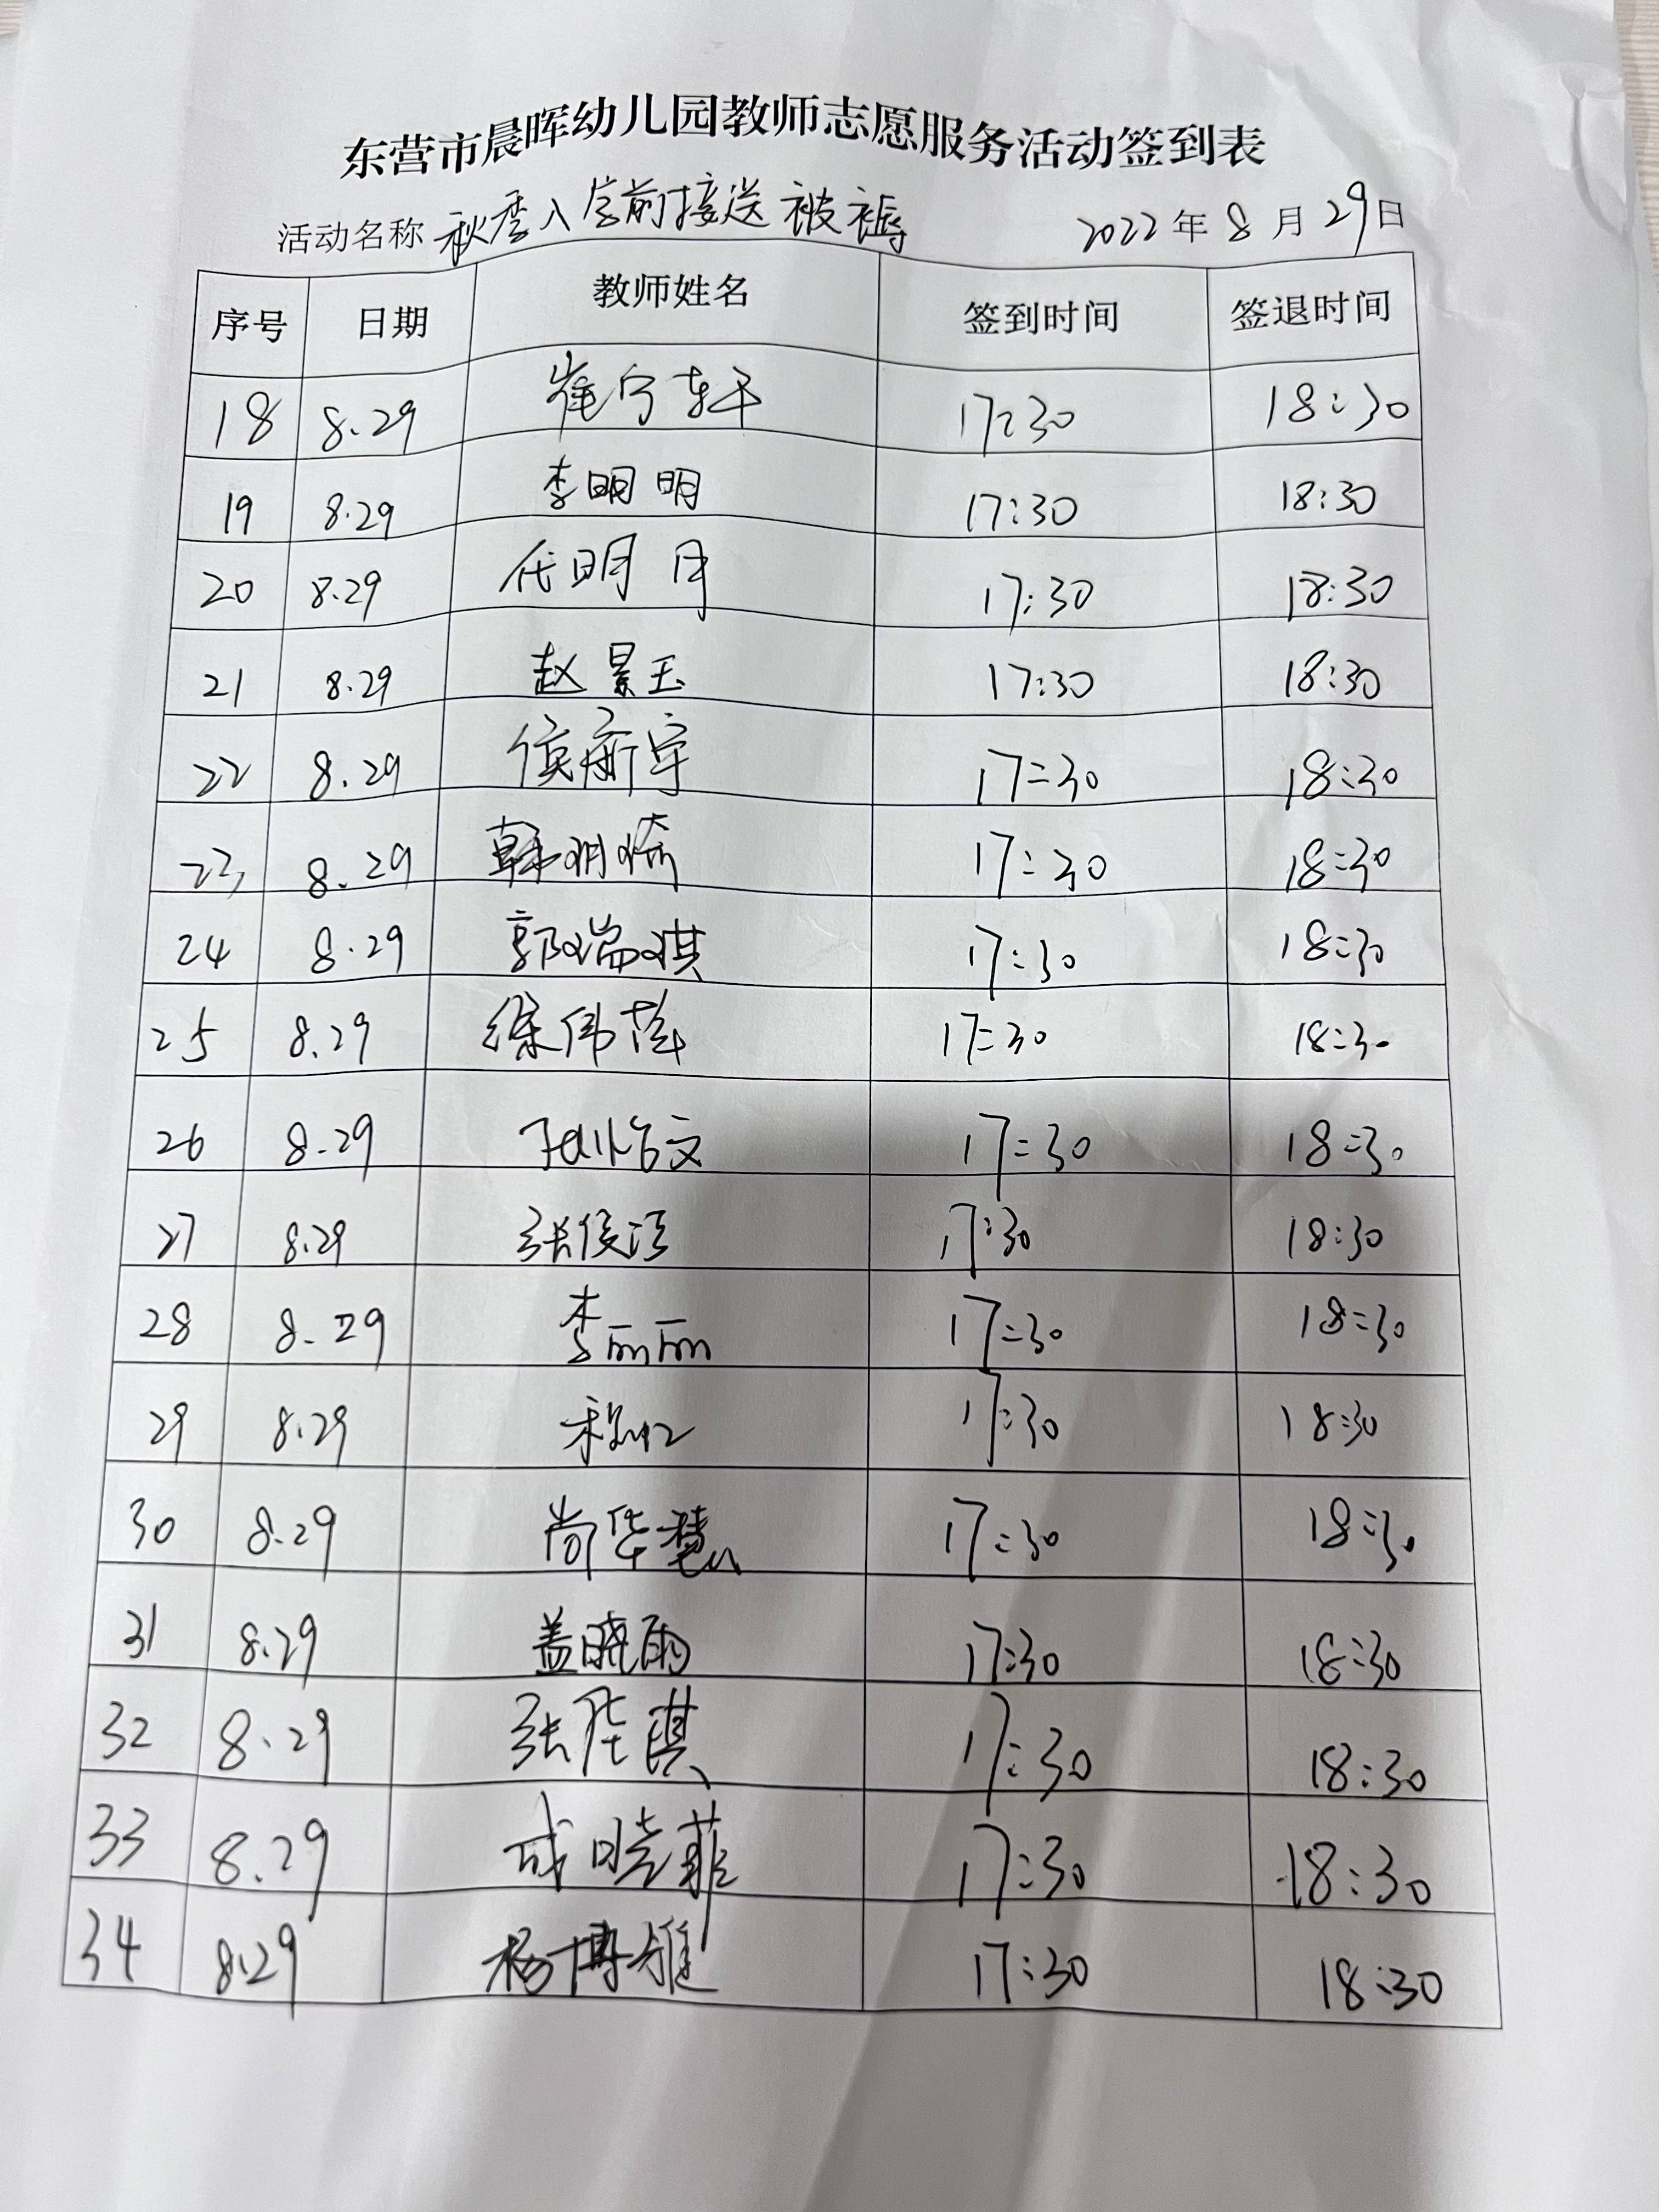 东营市晨晖幼儿园教师志愿服务活动签到表
活动名称 秋季入学前接送被褥 2022年8月29日
序号 日期 教师姓名 签到时间 签退时间
18 8.29 崔宁轩 17:30 18:30
19 8.29 李明明 17:30 18:30
20 8.29 代明月 17:30 18:30
21 8.29 赵景玉 17:30 18:30
22 8.29 侯新宇 17:30 18:30
23 8.29 韩明琦 17:30 18:30
24 8.29 郭瑞琪 17:30 18:30
25 8.29 徐伟萍 17:30 18:30
26 8.29 17:30 18:30
27 8.29 张俊 17:30 18:30
28 8.29 李丽丽 17:30 18:30
29 8.29 17:30 18:30
30 8.29 尚华慧 17:30 18:30
31 8.29 盖晓雨 17:30 18:30
32 8.29 张琪 17:30 18:30
33 8.29 成晓菲 17:30 18:30
34 8.29 杨博雅 17:30 18:30